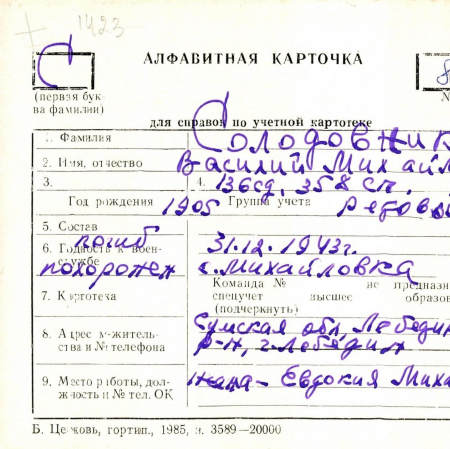 1423
С
АЛФАВИТНАЯ КАРТОЧКА
(первая бук-
ва фамилии)
№
для справок по учетной картотеке
1. Фамилия Солодовник
2. Имя, отчество Василий Михайл
3. 4. 136сд, 358 сп,
Год рождения 1905 Группа учета рядовой
5. Состав
6. Годность к воен- погиб 31.12.1943г.
службе похоронен с. Михайловка
7. Картотека Команда № не предназн
спецучет высшее образов
(подчеркнуть)
8. Адрес житель- Сумская обл, Лебедин
ства и № телефона р-н, г. Лебедин
9. Место работы, дол- жена - Евдокия Миха
жность и № тел. ОК
Б. Церковь, гортип., 1985, з. 3589—20000